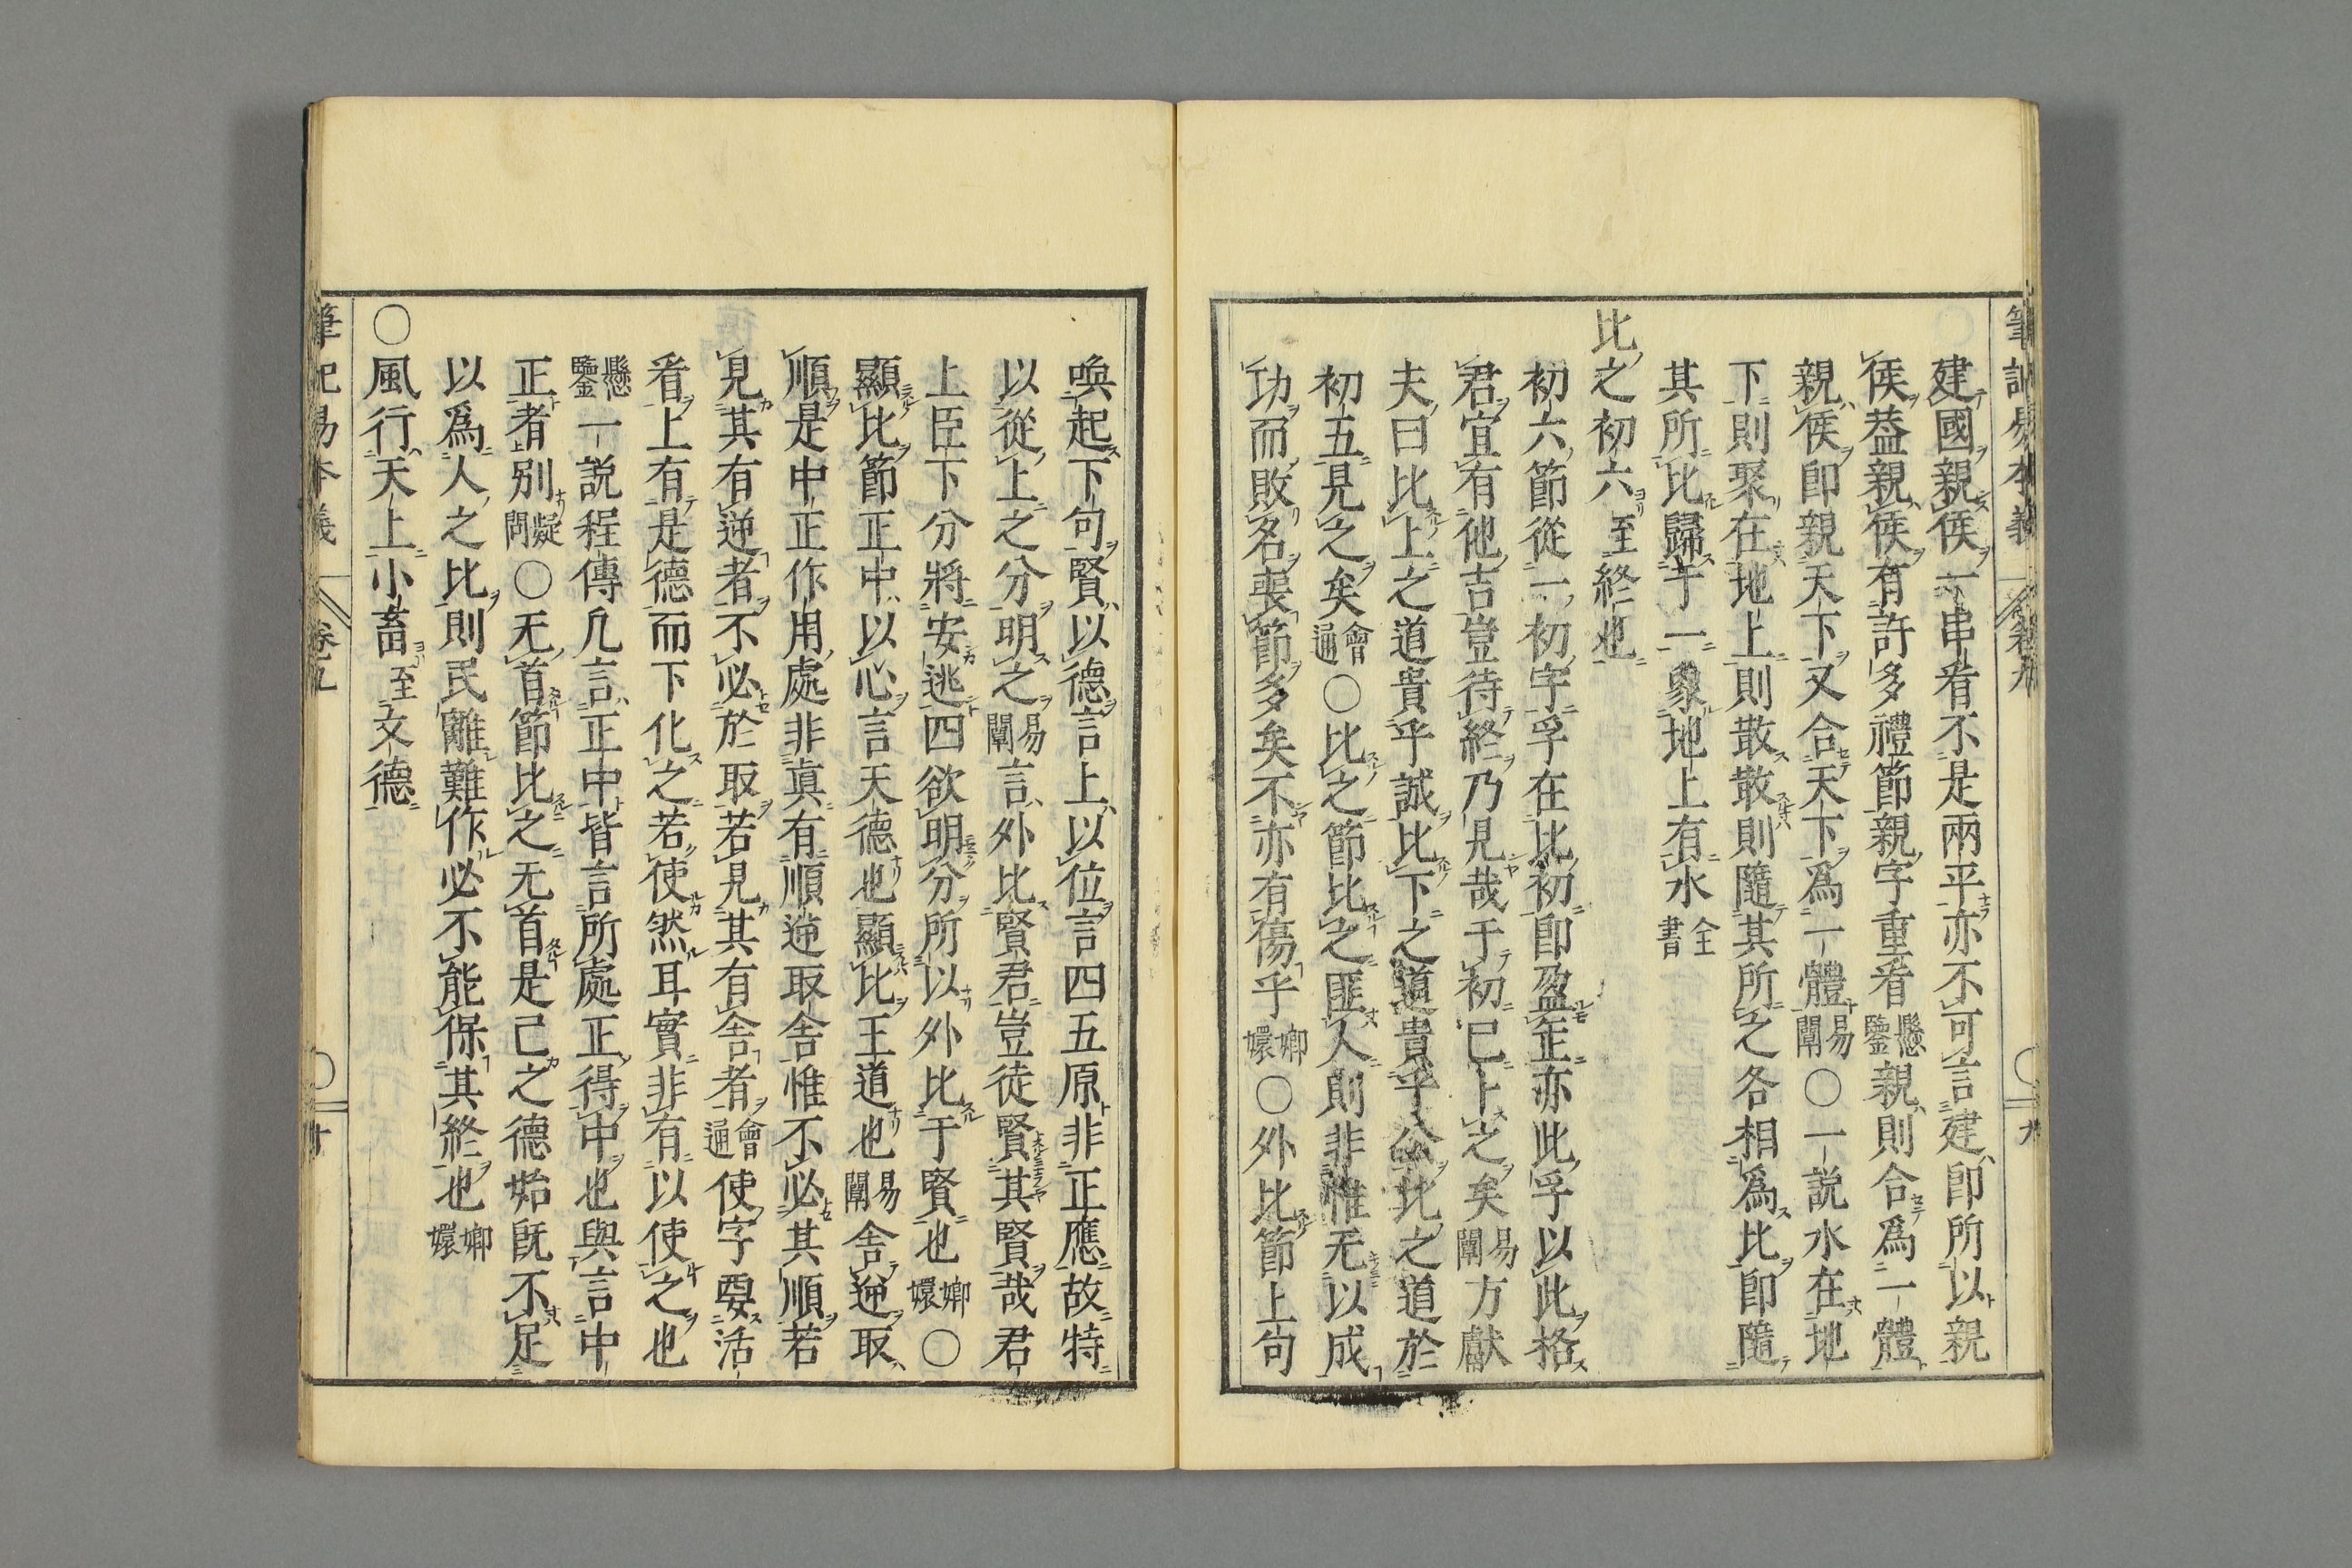 建國親侯一串看不是兩平亦不可言建即所以親
侯葢親侯有許多禮節親字重看懸鑒親則合爲一體
親侯即親天下又合天下爲一體易闡○一說水在地
下則聚在地上則散散則隨其所之各相爲比即隨
其所比歸于一象地上有水全書
比之初六至終也
初六節從一初字孚在比初即盈缶亦此孚以此格
君宜有他吉豈待終乃見哉于初已卜之矣易闡方獻
夫曰比上之道貴乎誠比下之道貴乎公比之道於
初五見之矣會通○比之節比之匪人則非惟无以成
功而敗名喪節多矣不亦有傷乎嫏嬛○外比節上句
喚起下句賢以德言上以位言四五原非正應故特
以從上之分明之易闡言外比賢君豈徒賢其賢哉君
上臣下分將安逃四欲明分所以外比于賢也嫏嬛○
顯比節正中以心言天德也顯比王道也易闡舍逆取
順是中正作用處非眞有順逆取舍惟不必其順若
見其有逆者不必於取若見其有舍者會通使字要活
看上有是德而下化之若使然耳實非有以使之也
懸鑒一說程傳凡言正中皆言所處正得中也與言中
正者別疑問○无首節比之无首是己之德始旣不足
以爲人之比則民離難作必不能保其終也嫏嬛
○風行天上小畜至文德
筆記易本義 卷五 十